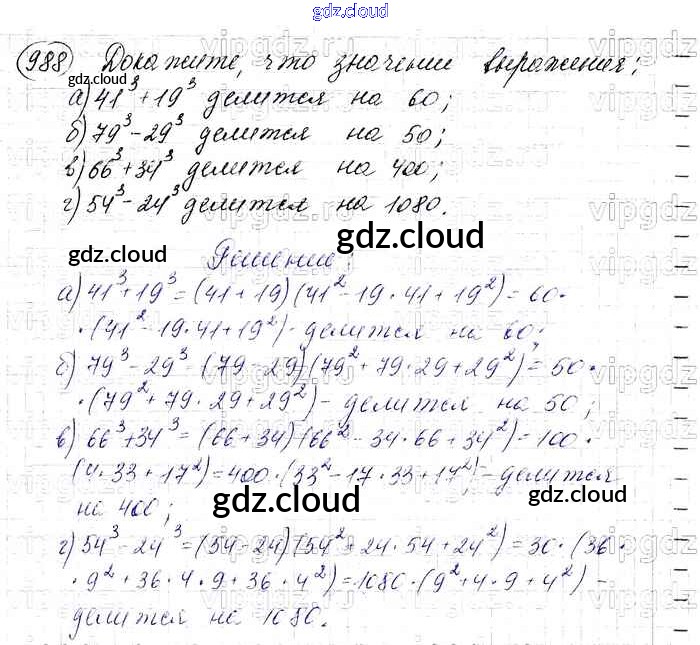 gdz.cloud
988 Докажите, что значение выражения:
gdz.cloud
а) 41³ + 19³ делится на 60;
б) 79³ - 29³ делится на 50;
в) 66³ + 34³ делится на 400;
г) 54³ - 24³ делится на 1080.
gdz.cloud
gdz.cloud
Решение:
а) 41³ + 19³ = (41 + 19)(41² - 19·41 + 19²) = 60·
·(41² - 19·41 + 19²) - делится на 60;
б) 79³ - 29³ - (79 - 29)(79² + 79·29 + 29²) = 50·
·(79² + 79·29 + 29²) - делится на 50;
в) 66³ + 34³ = (66 + 34)(66² - 34·66 + 34²) = 100·
(4·33 + 17²) = 400·(33² - 17·33 + 17²) - делится
на 400;
gdz.cloud
gdz.cloud
г) 54³ - 24³ = (54 - 24)(54² + 24·54 + 24²) = 30·(36·
·9² + 36·4·9 + 36·4²) = 1080·(9² + 4·9 + 4²) -
делится на 1080.
vipgdz